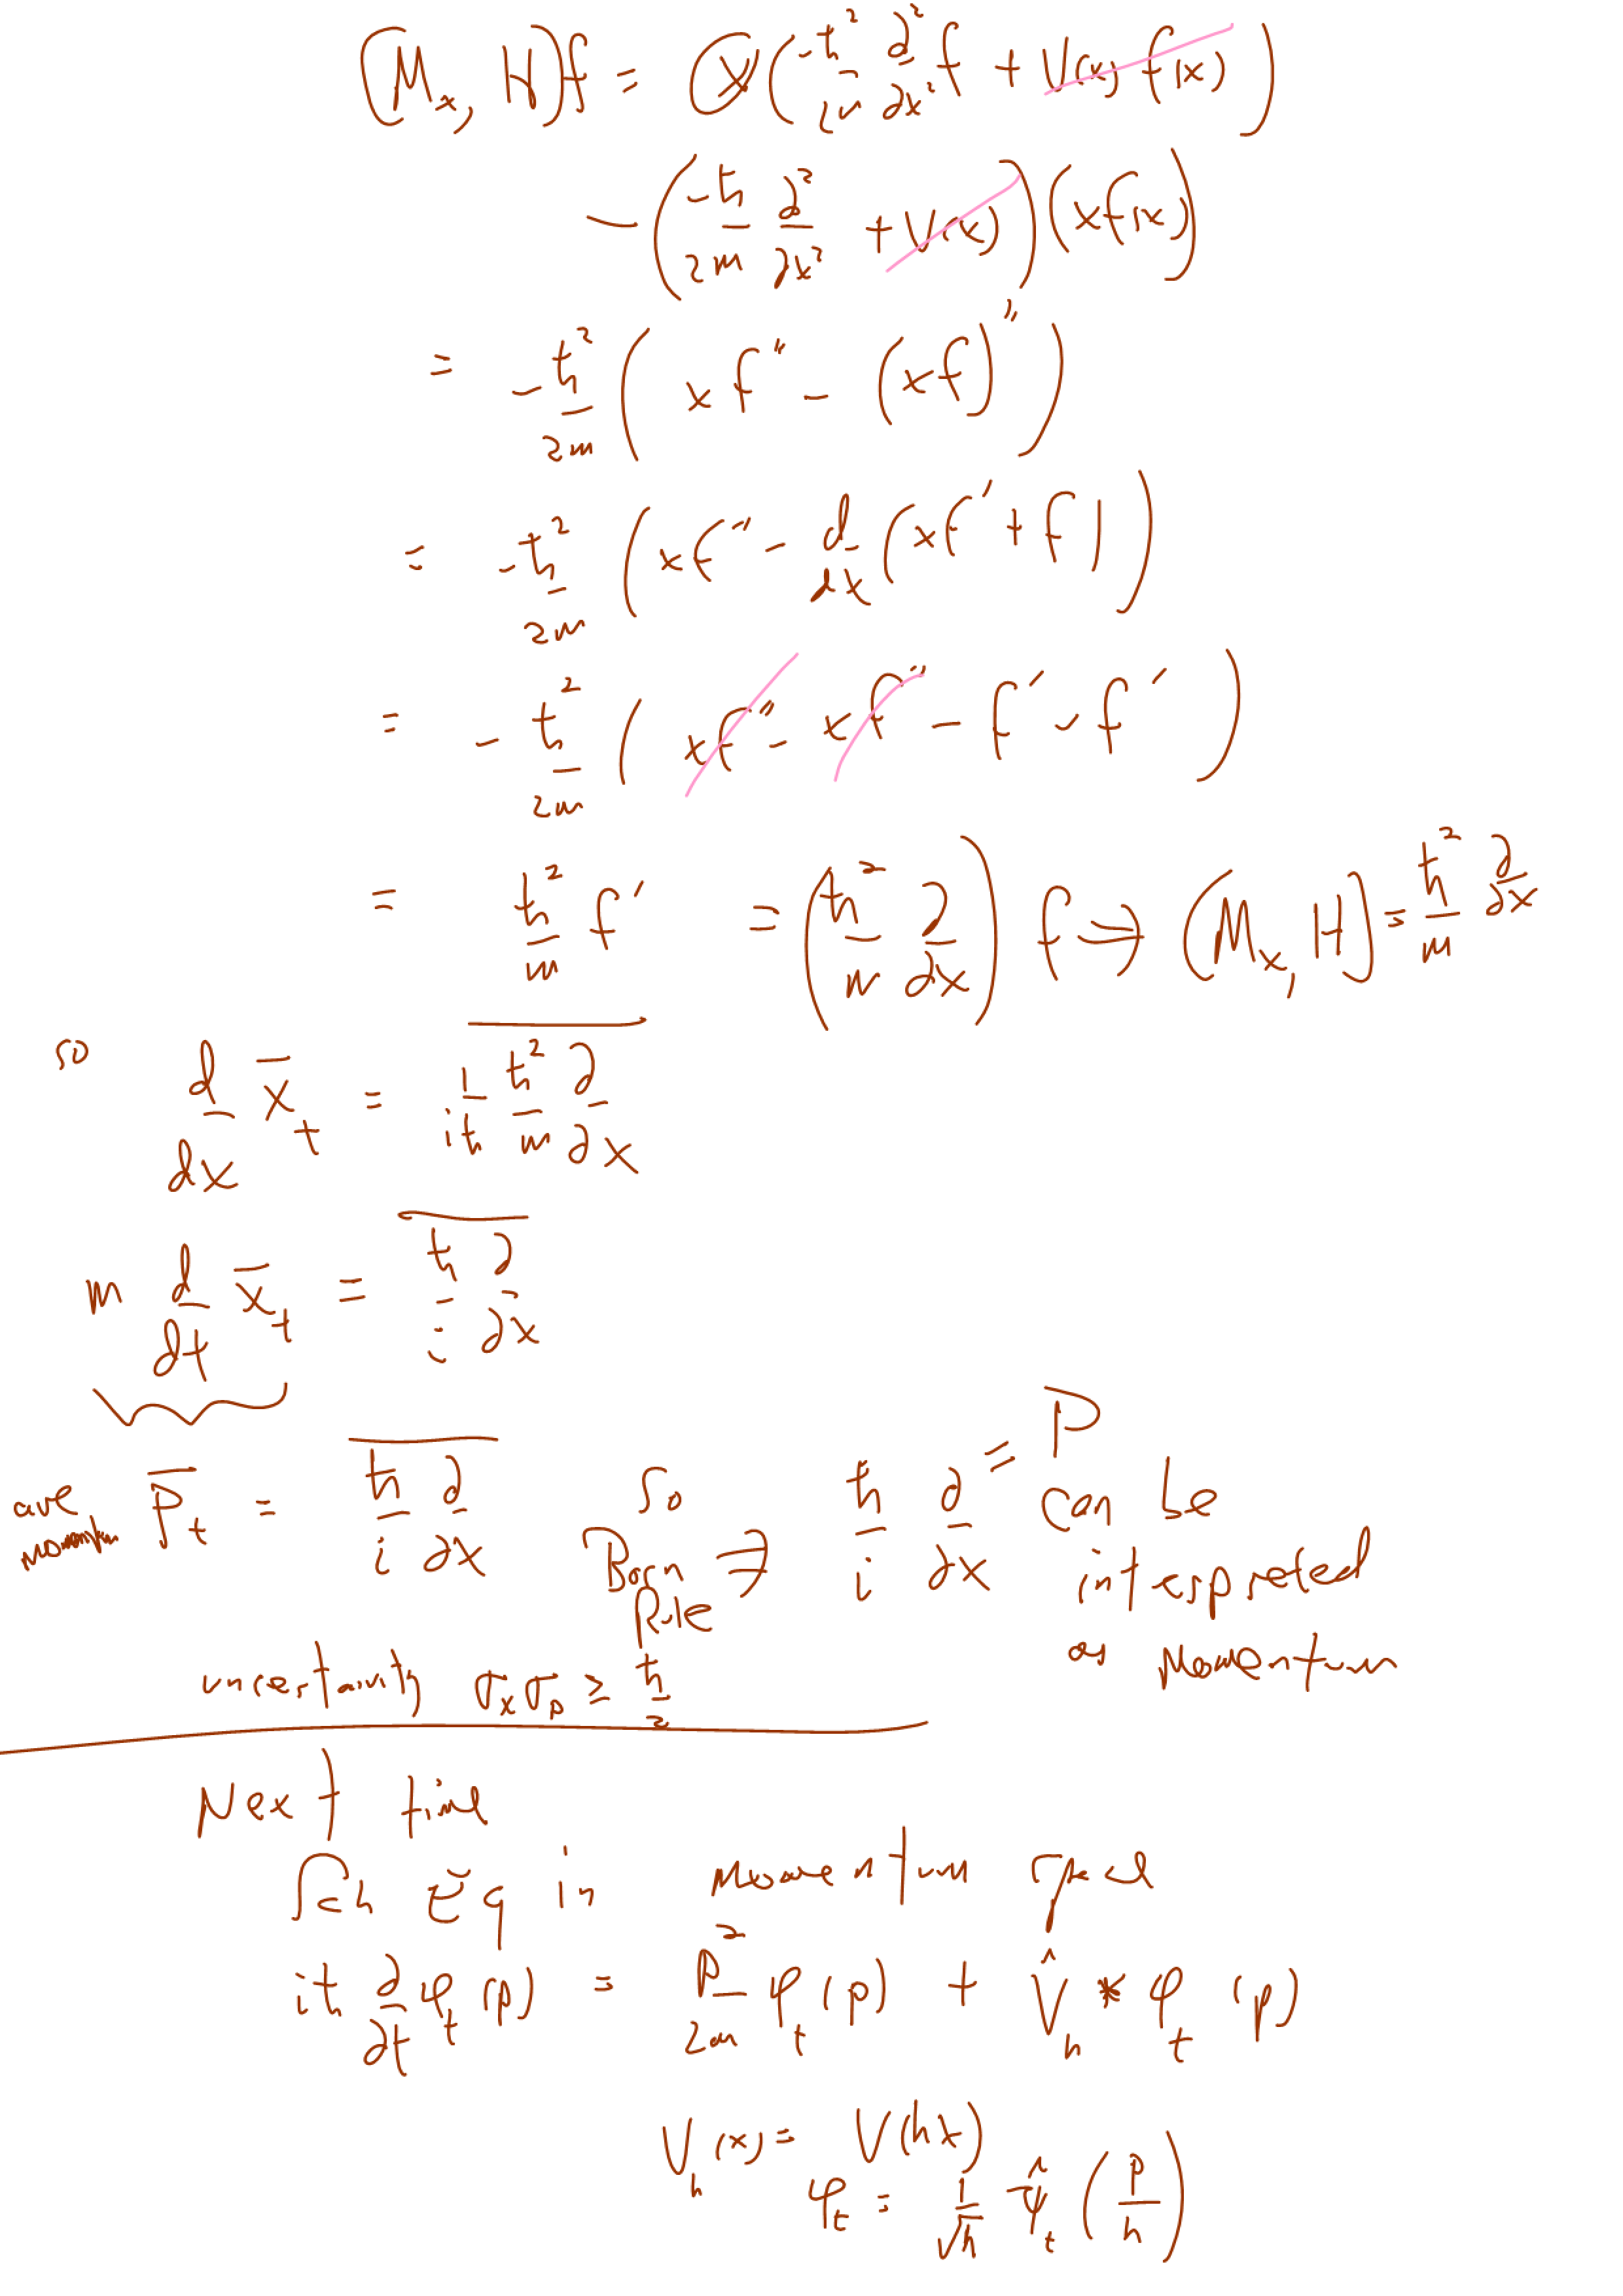 [M_x, H]f = x(-ħ²/2m ∂²/∂x² f + V(x) f(x))
-(-ħ/2m ∂²/∂x² + V(x))(xf(x))
= -ħ²/2m (x f'' - (xf)'')
= -ħ²/2m (xf'' - d/dx (xf' + f))
= -ħ²/2m (xf'' - xf'' - f' - f')
= ħ²/m f' = (ħ²/m ∂/∂x) f ⇒ [M_x, H] = ħ²/m ∂/∂x
so d/dx x̄_t = \overline{1/iħ ħ²/m ∂/∂x}
m d/dt x̄_t = \overline{ħ/i ∂/∂x}
ave momentum P̄_t = \overline{ħ/i ∂/∂x} So Born Rule ⇒ ħ/i ∂/∂x = P can be interpreted as momentum
uncertainty σ_x σ_p ≥ ħ/2
Next time
Sch Eq in momentum space
iħ ∂/∂t φ_t(p) = p²/2m φ_t(p) + V̂_h * φ_t(p)
V_h(x) = V(hx)
φ_t = 1/√h ψ̂_t(p/h)